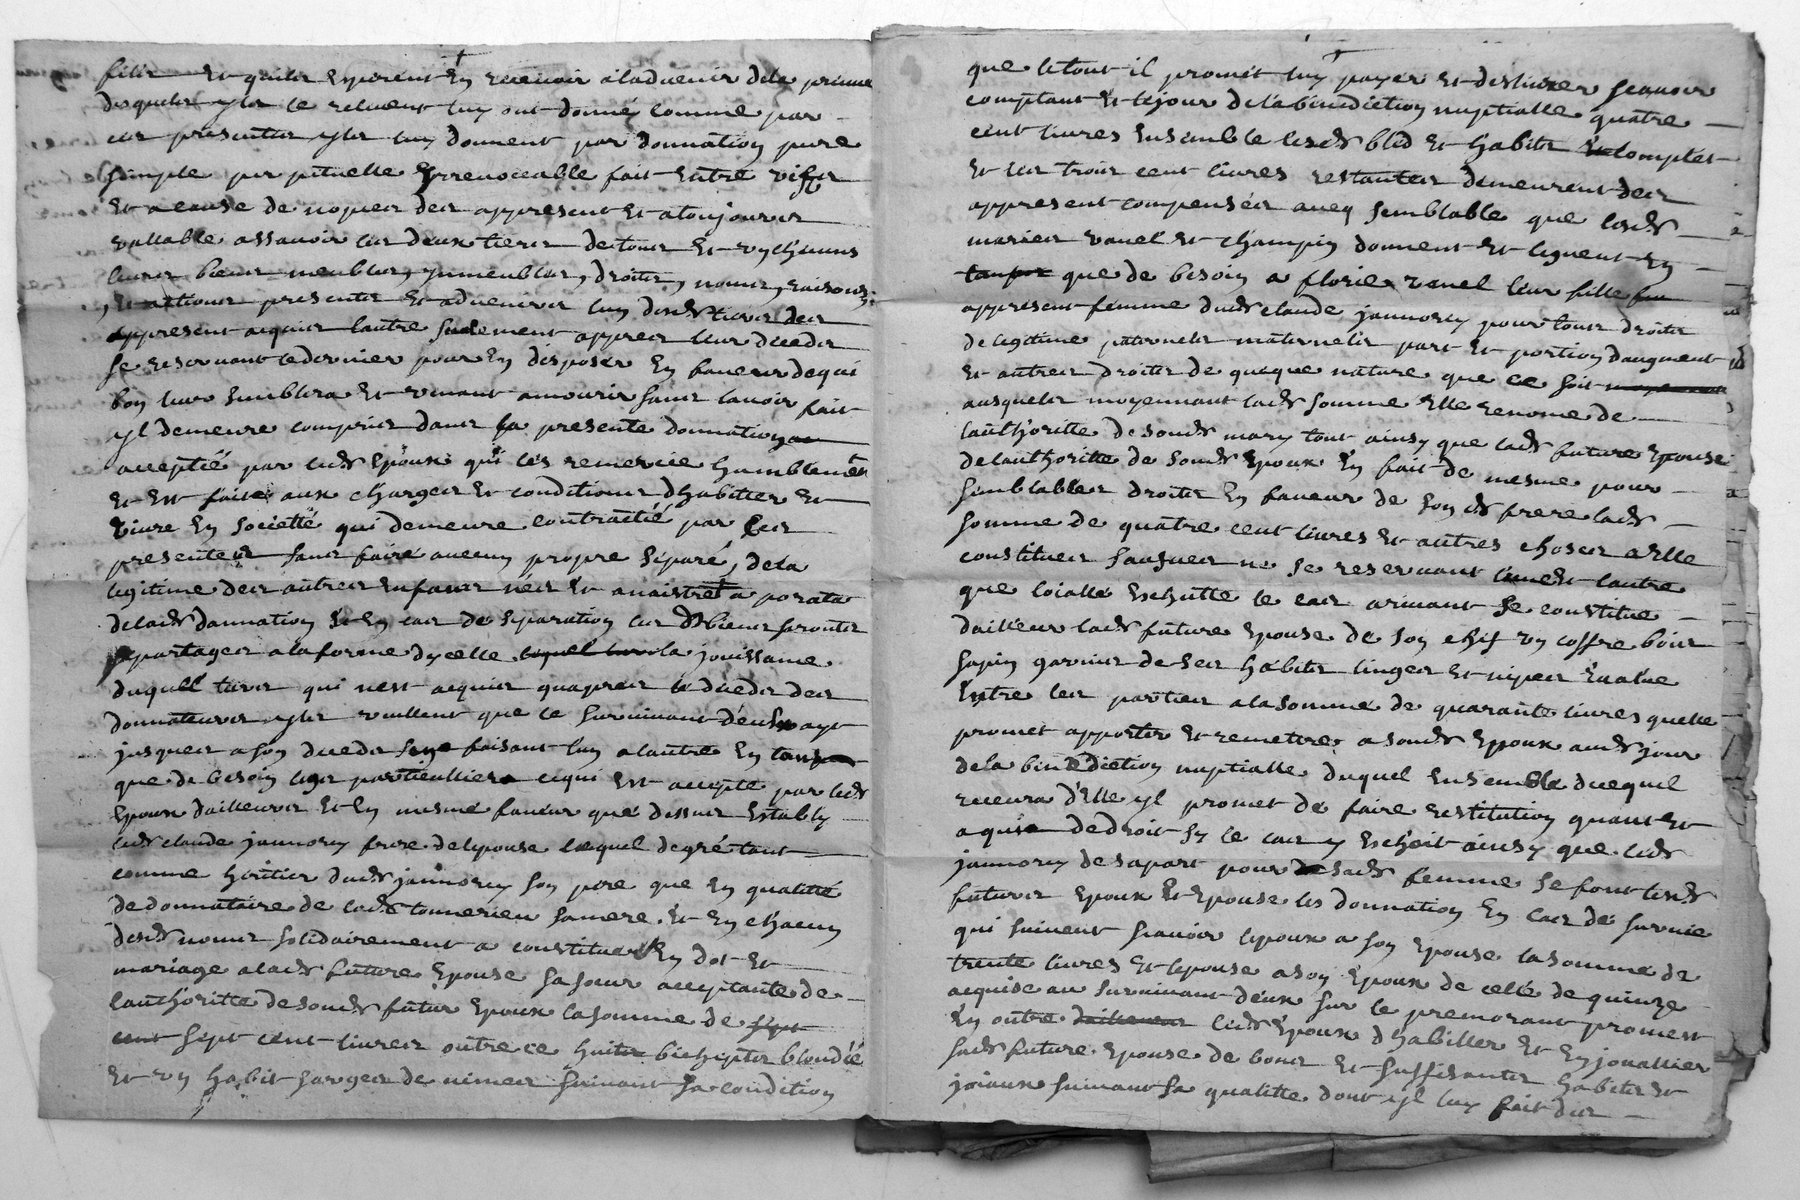 filz et quilz esperent en recevoir a ladvenir dela prime
desquelz ylz le relevent luy ont donné comme par
ces presentes ylz luy donnent par donnation pure
simple perpetuelle irrevocable fait entre vifz
et a cause de nopces des appresent et a toujours
vallable assavoir les deux tiers de tous et uns chacuns
leurs biens meubles, ymmeubles, droits, noms, raisons,
et actions presents et advenir luy desds tiers des
appresent acquis lautre seulement appres leur deceds
se reservant le dernier pour en disposer en faveur de qui
bon leur semblera et venant a mourir sans lavoir fait
yl demeure compris dans la presente donnation
acceptée par leds epoux qui les remercie humblement
et est faite aux charges et conditions dhabiter et
vivre en societté qui demeure contractée par ces
presentes sans faire aucun propre separé, dela
legitime des autres enfans nés et a naistre a porata
de lads dannation et en cas de separation les ds biens seronts
partages a la forme dycelle la jouissance
duquel tiers qui nest acquis quapres le deceds des
donnateurs ylz veullent que le survivant deux aye
jusques a son deceds faisant lun a lautre en
que de besoin legs particulliers ce qui est accepté par leds
epoux dailleurs et en mesme faveur que dessus estably
leds claude jannorey frere delepouse lequel de gré tant
comme heritier duds jannorey son pere que en qualitté
de donnataire de lads tonnerieu sa mere et en chacun
desds noms solidairement a constitué en dot et
mariage a lads future epouse sa soeur acceptante de
lauthoritte de sonds futur epoux la somme de sept
cent sept cent livres outre ce huits bichets bled
et un habit sarges de nimes suivant sa condition
que le tout il promet luy payer et deslivrer scavoir
comptant et le jour de la benediction nuptialle quatre
cent livres ensemble lesds bled et habits complet
et les trois cent livres restantes demeurent des
appresent compensées avec semblable que lesds
mariés ravel et champin donnent et leguent en
que de besoin a florie ravel leur fille
appresent femme duds claude jannorey pour tous droits
de legitime paternels maternels part et portion daugment
et autres droits de quelque nature que ce soit
ausquels moyennant lads somme elle renonce de
lauthoritte de sonds mary tout ainsy que lads future epouse
de lauthoritte de sonds epoux en fait de mesme pour
semblables droits en faveur de son ds frere lads
somme de quatre cent livres et autres choses a elle
constituees sauf ne se reservant lune et lautre
que loialle eschutte le cas arrivant se constitue
dailleur lads future epouse de son chef un coffre bois
sapin garnis de ses habits linges et nipes evalué
entre les parties a la somme de quarante livres quelle
promet apporter et remettre a sonds epoux auds jour
dela benediction nuptialle duquel ensemble de ce quil
recevra delle yl promet de faire restitution quant et
a qui de droit sy le cas y eschoit ainsy que leds
jannorey de sa part pour sads femme se font lesds
futurs epoux et epouse les donnation en cas de survie
qui suivent scavoir lepoux a son epouse la somme de
trente livres et lepouse a son epoux de celle de quinze
acquise au survivant deux sur le premourant promest
en outre leds epoux dhabiller et enjouallier
sads future epouse de bons et suffisants habits et
joiaux suivant sa qualitte dont yl luy fait des